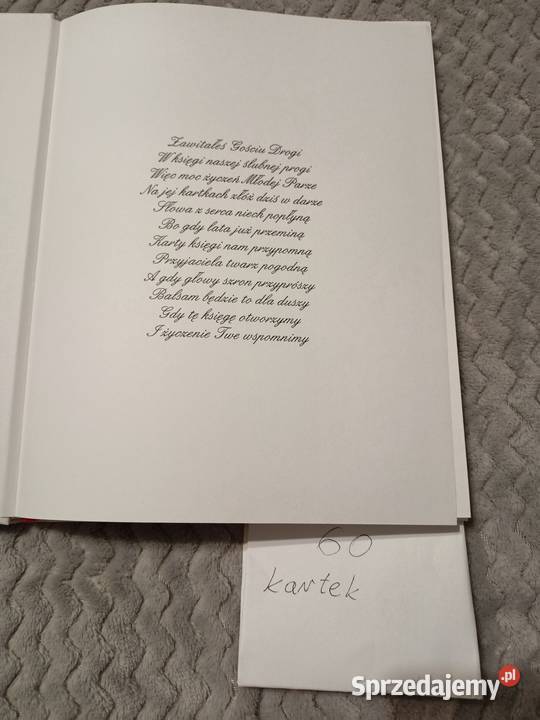 Zawitałeś Gościu Drogi
W księgi naszej ślubnej progi
Więc moc życzeń Młodej Parze
Na jej kartkach złóż dziś w darze
Słowa z serca niech popłyną
Bo gdy lata już przeminą
Karty księgi nam przypomną
Przyjaciela twarz pogodną
A gdy głowy szron przyprószy
Balsam będzie to dla duszy
Gdy tę księgę otworzymy
I życzenie Twe wspomnimy
60
kartek
Sprzedajemy.pl